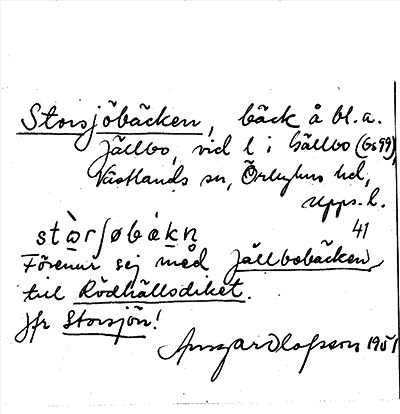 Storsjöbäcken, bäck å bl.a.
Jällbo, vid l i hällbo (Gs 99),
Västlands sn, Örbyhus hd,
Upps. l.
41
Förenar sej med Jällbobäcken
till Rödhällsdiket.
Jfr Storsjön!
Ansgar Olofsson 1951